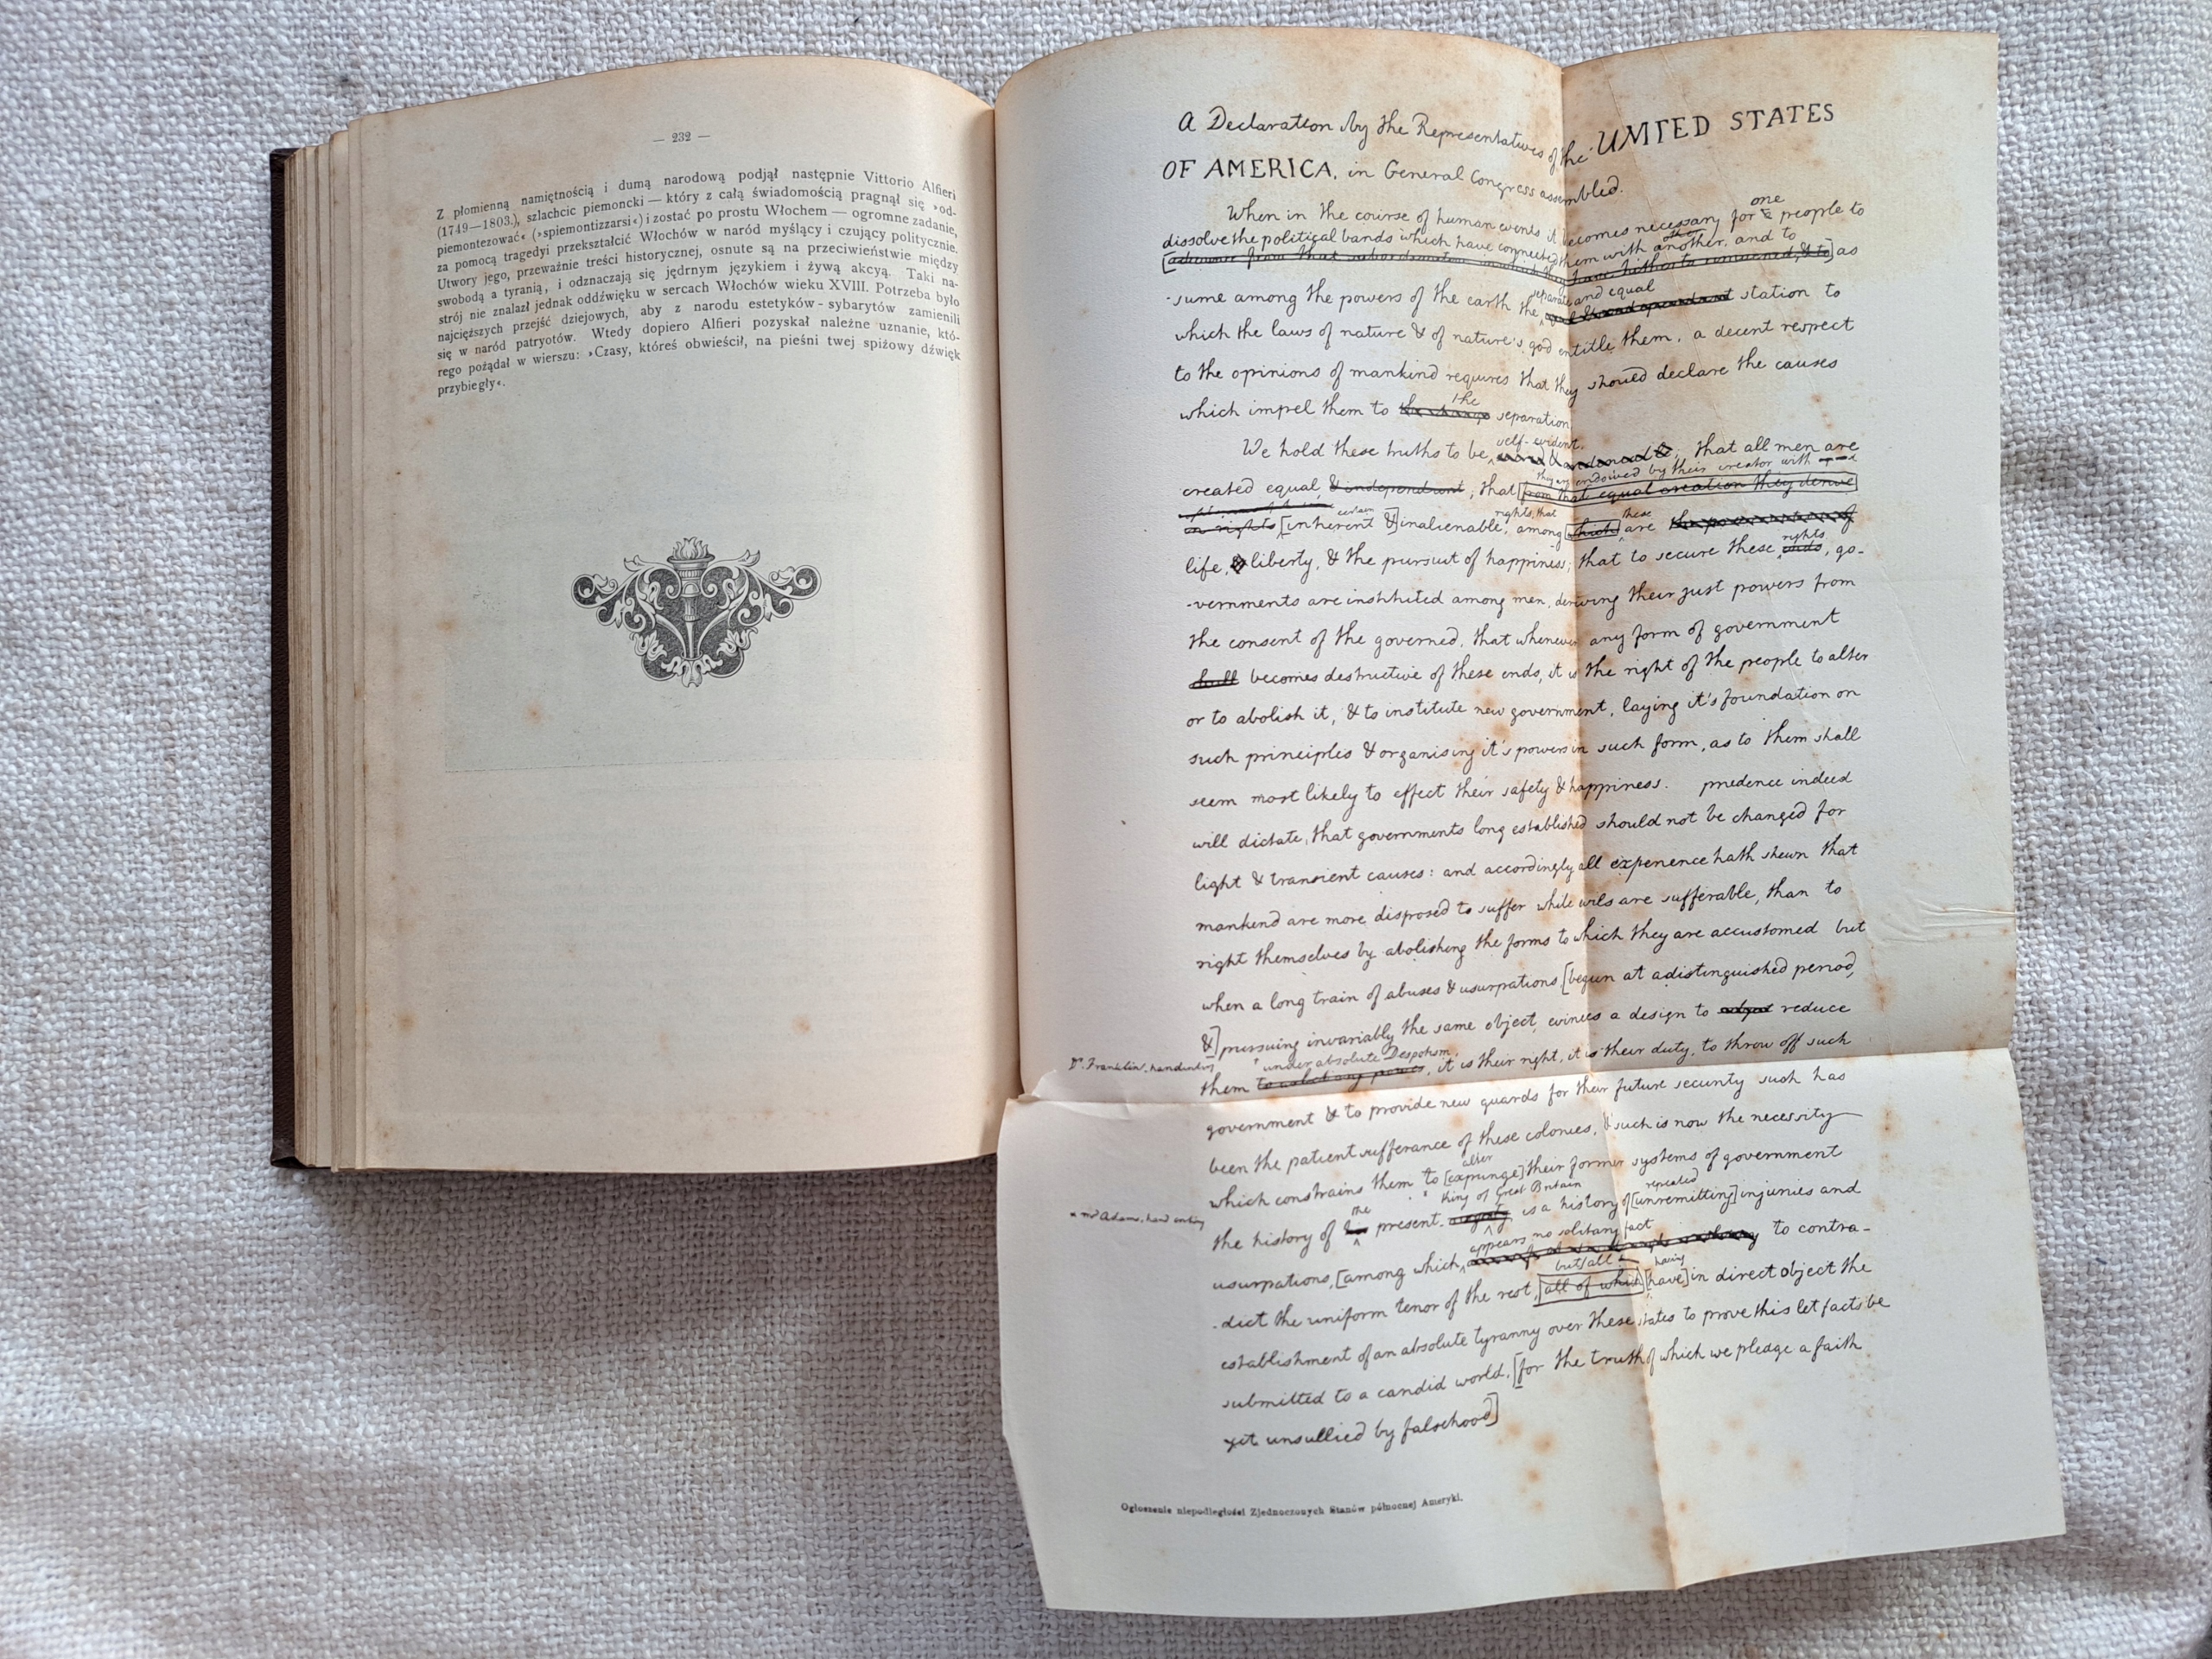 — 232 —
Z płomienną namiętnością i dumą narodową podjął następnie Vittorio Alfieri
(1749—1803.), szlachcic piemoncki — który z całą świadomością pragnął się »od-
piemontezować« (»spiemontizzarsi«) i zostać po prostu Włochem — ogromne zadanie,
za pomocą tragedyi przekształcić Włochów w naród myślący i czujący politycznie.
Utwory jego, przeważnie treści historycznej, osnute są na przeciwieństwie między
swobodą a tyranią, i odznaczają się jędrnym językiem i żywą akcyą. Taki na-
strój nie znalazł jednak oddźwięku w sercach Włochów wieku XVIII. Potrzeba było
najcięższych przejść dziejowych, aby z narodu estetyków-sybarytów zamienili
się w naród patryotów. Wtedy dopiero Alfieri pozyskał należne uznanie, któ-
rego pożądał w wierszu: »Czasy, któreś obwieścił, na pieśni twej spiżowy dźwięk
przybiegły«.
a Declaration by the Representatives of the UNITED STATES
OF AMERICA, in General Congress assembled.
one
When in the course of human events it becomes necessary for people to
dissolve the political bands which have connected them with another, and to
[advance from that subordination in which they have hitherto remained, & to] as
separate and equal
-sume among the powers of the earth the station to
which the laws of nature & of nature's god entitle them, a decent respect
to the opinions of mankind requires that they should declare the causes
the
which impel them to the change separation.
self-evident,
We hold these truths to be that all men are
they are endowed by their creator with
created equal & independent; that [from that equal creation they derive
certain rights, that these
in rights [inherent &] inalienable, among which are
rights
life, liberty, & the pursuit of happiness; that to secure these ends, go-
-vernments are instituted among men, deriving their just powers from
the consent of the governed, that whenever any form of government
shall becomes destructive of these ends, it is the right of the people to alter
or to abolish it, & to institute new government, laying it's foundation on
such principles & organising it's powers in such form, as to them shall
seem most likely to effect their safety & happiness. prudence indeed
will dictate, that governments long established should not be changed for
light & transient causes: and accordingly all experience hath shewn that
mankind are more disposed to suffer while evils are sufferable, than to
right themselves by abolishing the forms to which they are accustomed but
when a long train of abuses & usurpations [begun at a distinguished period,
&] pursuing invariably the same object, evinces a design to reduce
Dr. Franklin, handwriting under absolute Despotism
them , it is their right, it is their duty, to throw off such
government & to provide new guards for their future security such has
been the patient sufferance of these colonies, & such is now the necessity
alter
which constrains them to [expunge] their former systems of government
× mr Adams, hand writing the King of Great Britain repeated
the history of present is a history of [unremitting] injuries and
appears no solitary fact
usurpations, [among which, to contra-
but all having
-dict the uniform tenor of the rest, all of which [have] in direct object the
establishment of an absolute tyranny over these states to prove this let facts be
submitted to a candid world, [for the truth of which we pledge a faith
yet unsullied by falsehood]
Ogłoszenie niepodległości Zjednoczonych Stanów północnej Ameryki.